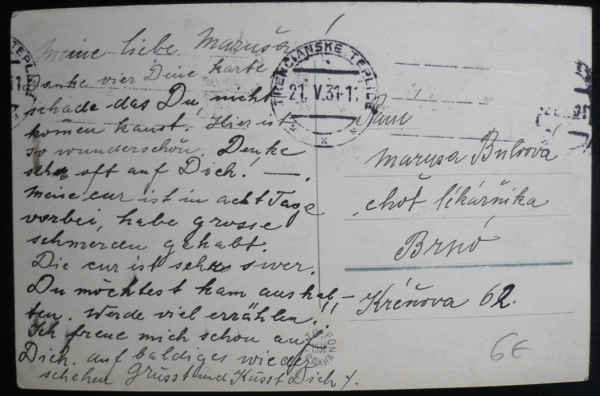 Meine liebe Marušo!
Danke vier Dine karte
schade das Du nicht
komen kanst. Hier ist
so wunderschön. Denke
sehr oft auf Dich! —
Meine cur ist in acht Tage
vorbei, habe grosse
schmerzen gehabt.
Die cur ist sehr swer.
Du möchtest kam aushal-
ten. Werde viel errählen!
Ich freue mich schon auf
Dich. auf baldiges wieder
schehen Grüsst und Küsst Dich
TRENČIANSKE TEPLICE
21. V. 31-1
Paní
Marysa
choť lékárníka
Brno
Křénova 62.
6€